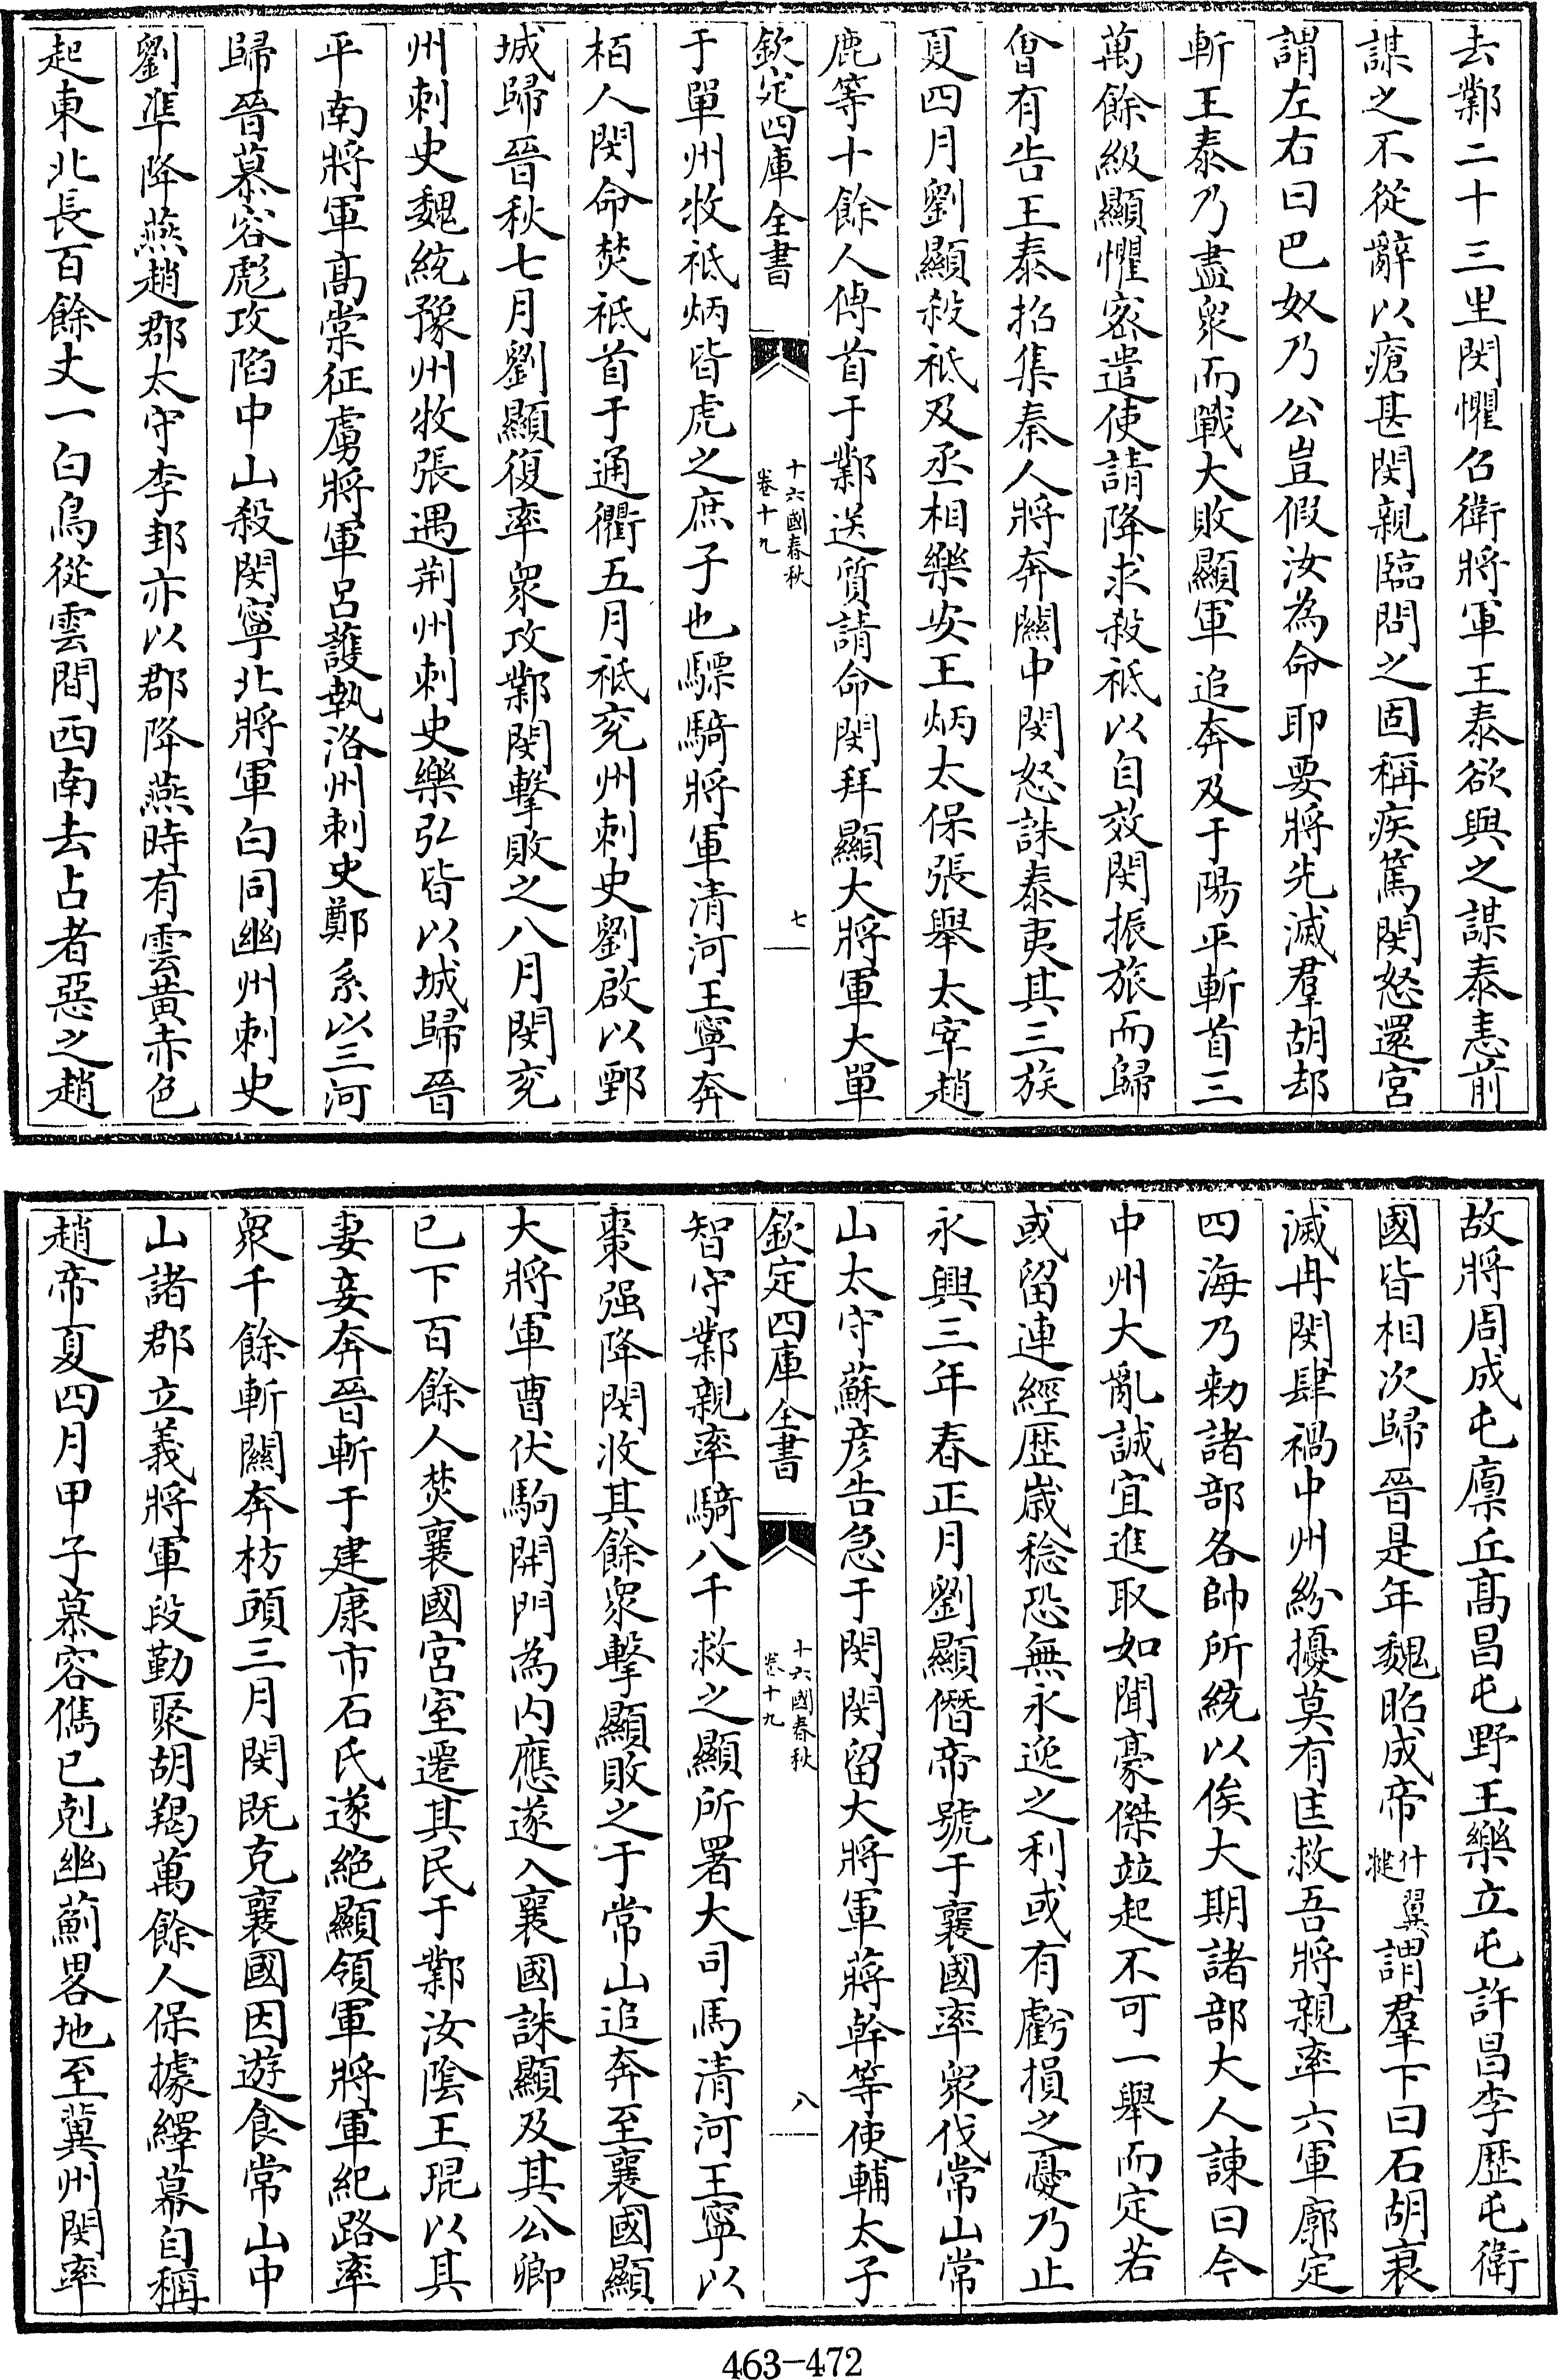 去鄴二十三里閔懼召衛將軍王泰欲與之謀泰恚前
謀之不從辭以瘡甚閔親臨問之固稱疾篤閔怒還宮
謂左右曰巴奴乃公豈假汝為命耶要將先滅羣胡却
斬王泰乃盡衆而戰大敗顯軍追奔及于陽平斬首三
萬餘級顯懼密遣使請降求殺祗以自效閔振旅而歸
㑹有告王泰招集秦人將奔關中閔怒誅泰夷其三族
夏四月劉顯殺祗及丞相樂安王炳太保張舉太宰趙
鹿等十餘人傳首于鄴送質請命閔拜顯大將軍大單
欽定四庫全書
十六國春秋
卷十九
七
于單州牧祗炳皆虎之庶子也驃騎將軍清河王寧奔
柏人閔命焚祗首于通衢五月祗兖州刺史劉啟以鄄
城歸晉秋七月劉顯復率衆攻鄴閔擊敗之八月閔兖
州刺史魏統豫州牧張遇荆州刺史樂弘皆以城歸晉
平南將軍髙崇征虜將軍呂護執洛州刺史鄭系以三河
歸晉慕容彪攻陷中山殺閔寧北將軍白同幽州刺史
劉準降燕趙郡太守李邽亦以郡降燕時有雲黄赤色
起東北長百餘丈一白鳥從雲間西南去占者惡之趙
故將周成屯廪丘髙昌屯野王樂立屯許昌李歴屯衛
國皆相次歸晉是年魏昭成帝什翼犍謂羣下曰石胡衰
滅冉閔肆禍中州紛擾莫有匡救吾將親率六軍廓定
四海乃勅諸部各帥所統以俟大期諸部大人諫曰今
中州大亂誠宜進取如聞豪傑竝起不可一舉而定若
或留連經歴嵗稔恐無永逸之利或有虧損之憂乃止
永興三年春正月劉顯僭帝號于襄國率衆伐常山常
山太守蘇彦告急于閔閔留大將軍蔣幹等使輔太子
欽定四庫全書
十六國春秋
卷十九
八
智守鄴親率騎八千救之顯所署大司馬清河王寧以
棗强降閔收其餘衆擊顯敗之于常山追奔至襄國顯
大將軍曹伏駒開門為内應遂入襄國誅顯及其公卿
已下百餘人焚襄國宮室遷其民于鄴汝陰王琨以其
妻妾奔晉斬于建康市石氏遂絶顯領軍將軍紀路率
衆千餘斬關奔枋頭三月閔既克襄國因遊食常山中
山諸郡立義將軍段勤聚胡羯萬餘人保據繹幕自稱
趙帝夏四月甲子慕容儁已剋幽薊畧地至冀州閔率
463-472